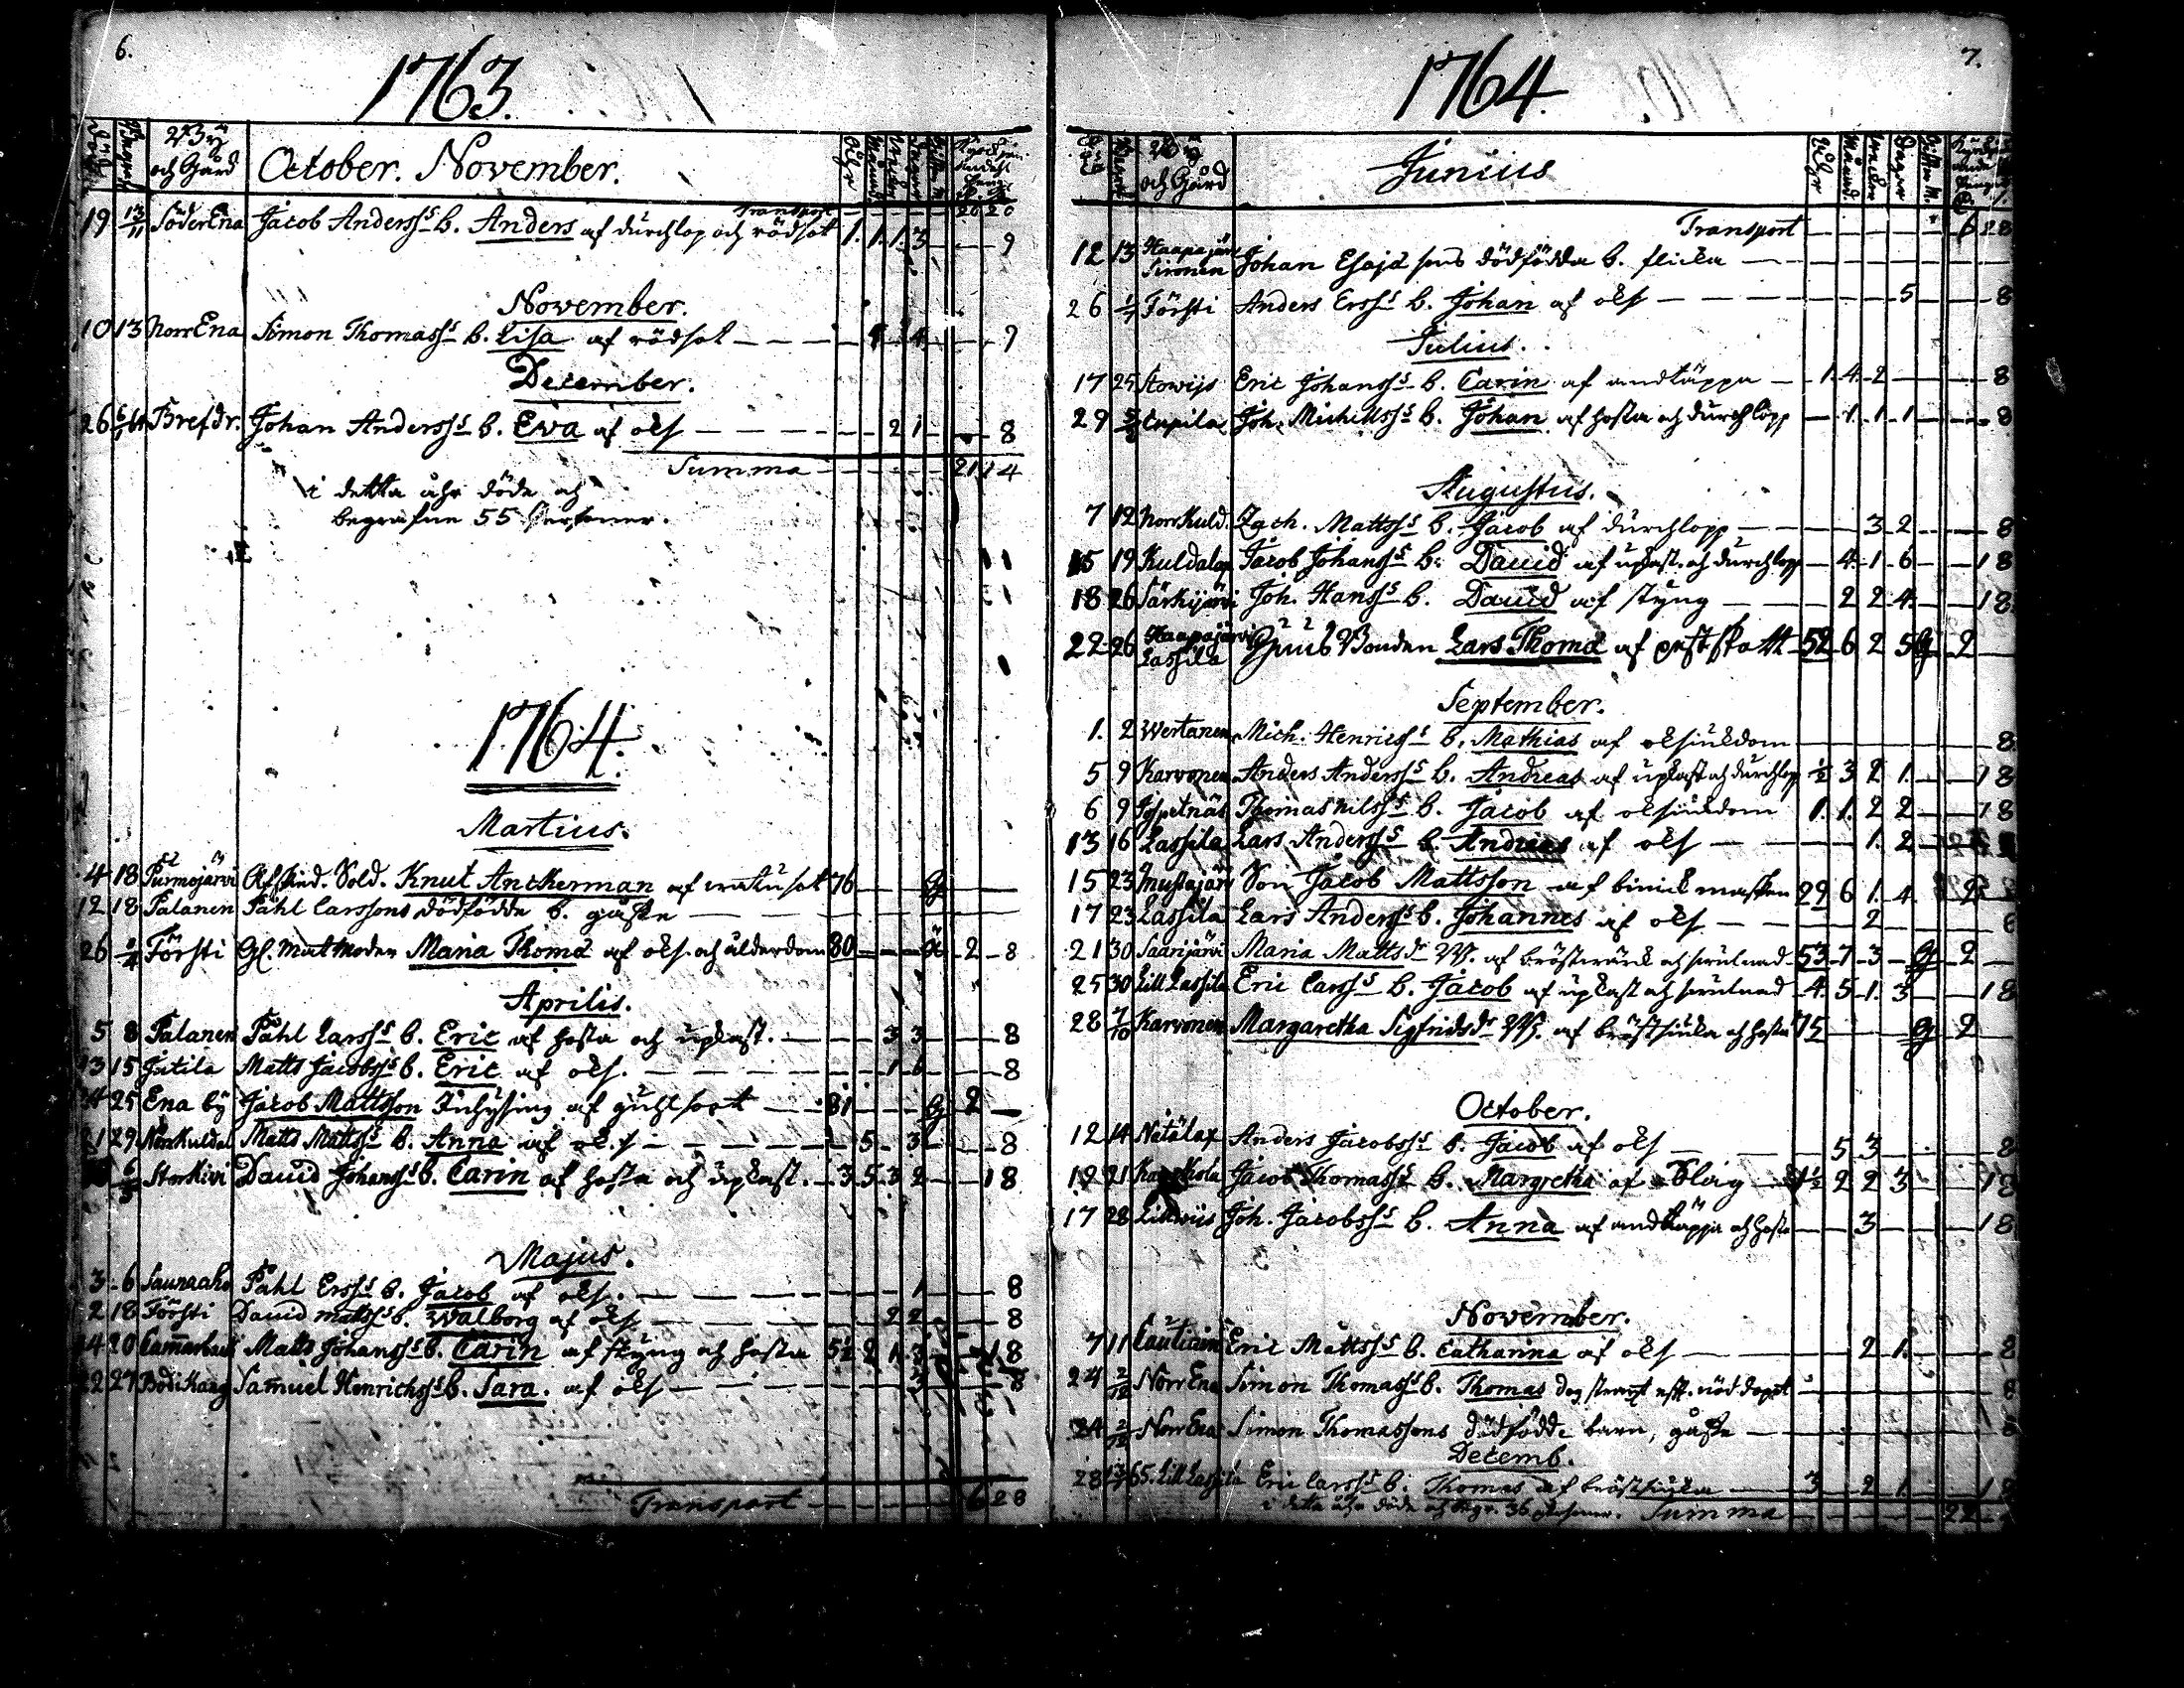 6.
1763.
By
och Gård
October. November.
Transport 20 20
19 13/11 SöderEna Jacob Anderss s b. Anders af durchlop och rödsot 1. 1. 1. 3 9
November.
10 13 NorrEna Simon Thomass s b. Lisa af rödsot 4 9
December.
26 Brefdr. Johan Anderss s b. Eva af ols 2 1 8
Summa 21 14
i detta åhr döde och
begrafne 55 Personer.
1764.
Martius.
4 18 Purmojärvi Afskied. Sold. Knut Anckerman af watusot 76 G
12 18 Palanen Påhl Larssons dödfödde b. gåsse
26 1/4 Försti Gl. Matmoder Maria Thomæ af ols. och ålderdom 80 2 8
Aprilis.
5 8 Palanen Påhl Larss s b. Eric af hosta och upkast. 3 3 8
13 15 Jutila Matts Jacobss s b. Eric af ols. 1 6 8
25 Ena by Jacob Mattsson Inhysing af guhlsoot 81 G 2
29 NorrKuldal Matts Mattss s b. Anna af ols 5 3 8
6/5 Storkivi David Johanss s b. Carin af hosta och upkast. 3 5 3 2 18
Majus.
3 6 Sauraaho Påhl Erss s b. Jacob af ols. 1 8
2 18 Försti David Mattss s b. Walborg af ols 2 2 8
14 20 Matts Johanss s b. Carin af styng och hosta 5½ 2 1 3 18
22 27 Samuel Henrichss s b. Sara. af ols 8
Transport 6 28
7.
1764.
By
och Gård
Junius
Transport 6 28
12 13 Haapajärvi Sironen Johan Esajæ sons dödfödda b. flicka
26 1/7 Försti Anders Erss s b. Johan af ols 5 8
Julius.
17 25 Storvijs Eric Johanss s b. Carin af andtäppa 1 4 2 8
29 Cupila Joh. Michellss s b. Johan af hosta och durchlopp 1 1 1 8
Augustus.
7 12 NorrKuld. Zach. Mattss s b. Jacob af durchlopp 3 2 8
15 19 Kuldalax Jacob Johanss s b. David af upkast och durchlopp 4 1 6 18
18 26 Särkijärvi Joh. Hanss s b. David af styng 2 2 4 18
22 26 Haapajärvi Lassila Bonden Lars Thomæ af 52 6 2 5 G 2
September.
1. 2 Wertanen Mich. Henricss s b. Mathias af olsiukdom 8
5 9 Karvonen Anders Anderss s b. Andreas af upkast och durchlop ½ 3 2 1 18
6 9 Thomas Nilss s b. Jacob af olsiukdom 1. 1. 2 2 18
13 16 Lassila Lars Anderss s b. Andreas af ols 1 2
15 23 Mustajärv Son Jacob Mattsson af binickmasken 29 6 1 4 2
17 23 Lassila Lars Anderss s b. Johannes af ols 2 8
21 30 Saarijärvi Maria Matts dr af bröstwärck och swulnad 53 7 3 G 2
25 30 Lill Lassila Eric Larss s b. Jacob af upkast och swulnad 4 5 1 3 18
28 7/10 Karvonen Margaretha Sigfrids dr af bröstsiuka och hosta 75 G 2
October.
12 14 Natålax Anders Jacobss s b. Jacob af ols 5 3 8
19 21 Jacob Thomass s b. Margretha af Slag 1½ 2 2 3 18
17 28 Lillwiis Joh. Jacobss s b. Anna af andtäppa och hosta 3 18
November.
7 11 Eric Mattss s b. Catharina af ols 2 1 8
24 2/12 NorrEna Simon Thomass s b. Thomas dog straxt eft. nöddopet 8
24 2/12 NorrEna Simon Thomassons dödfödde barn, gåsse
Decemb.
28 65. Lill Lassila Eric Larss s b. Thomas af bröstsiuka 3 2 1 18
i detta åhr döde och begr. 36 Personer. Summa 22